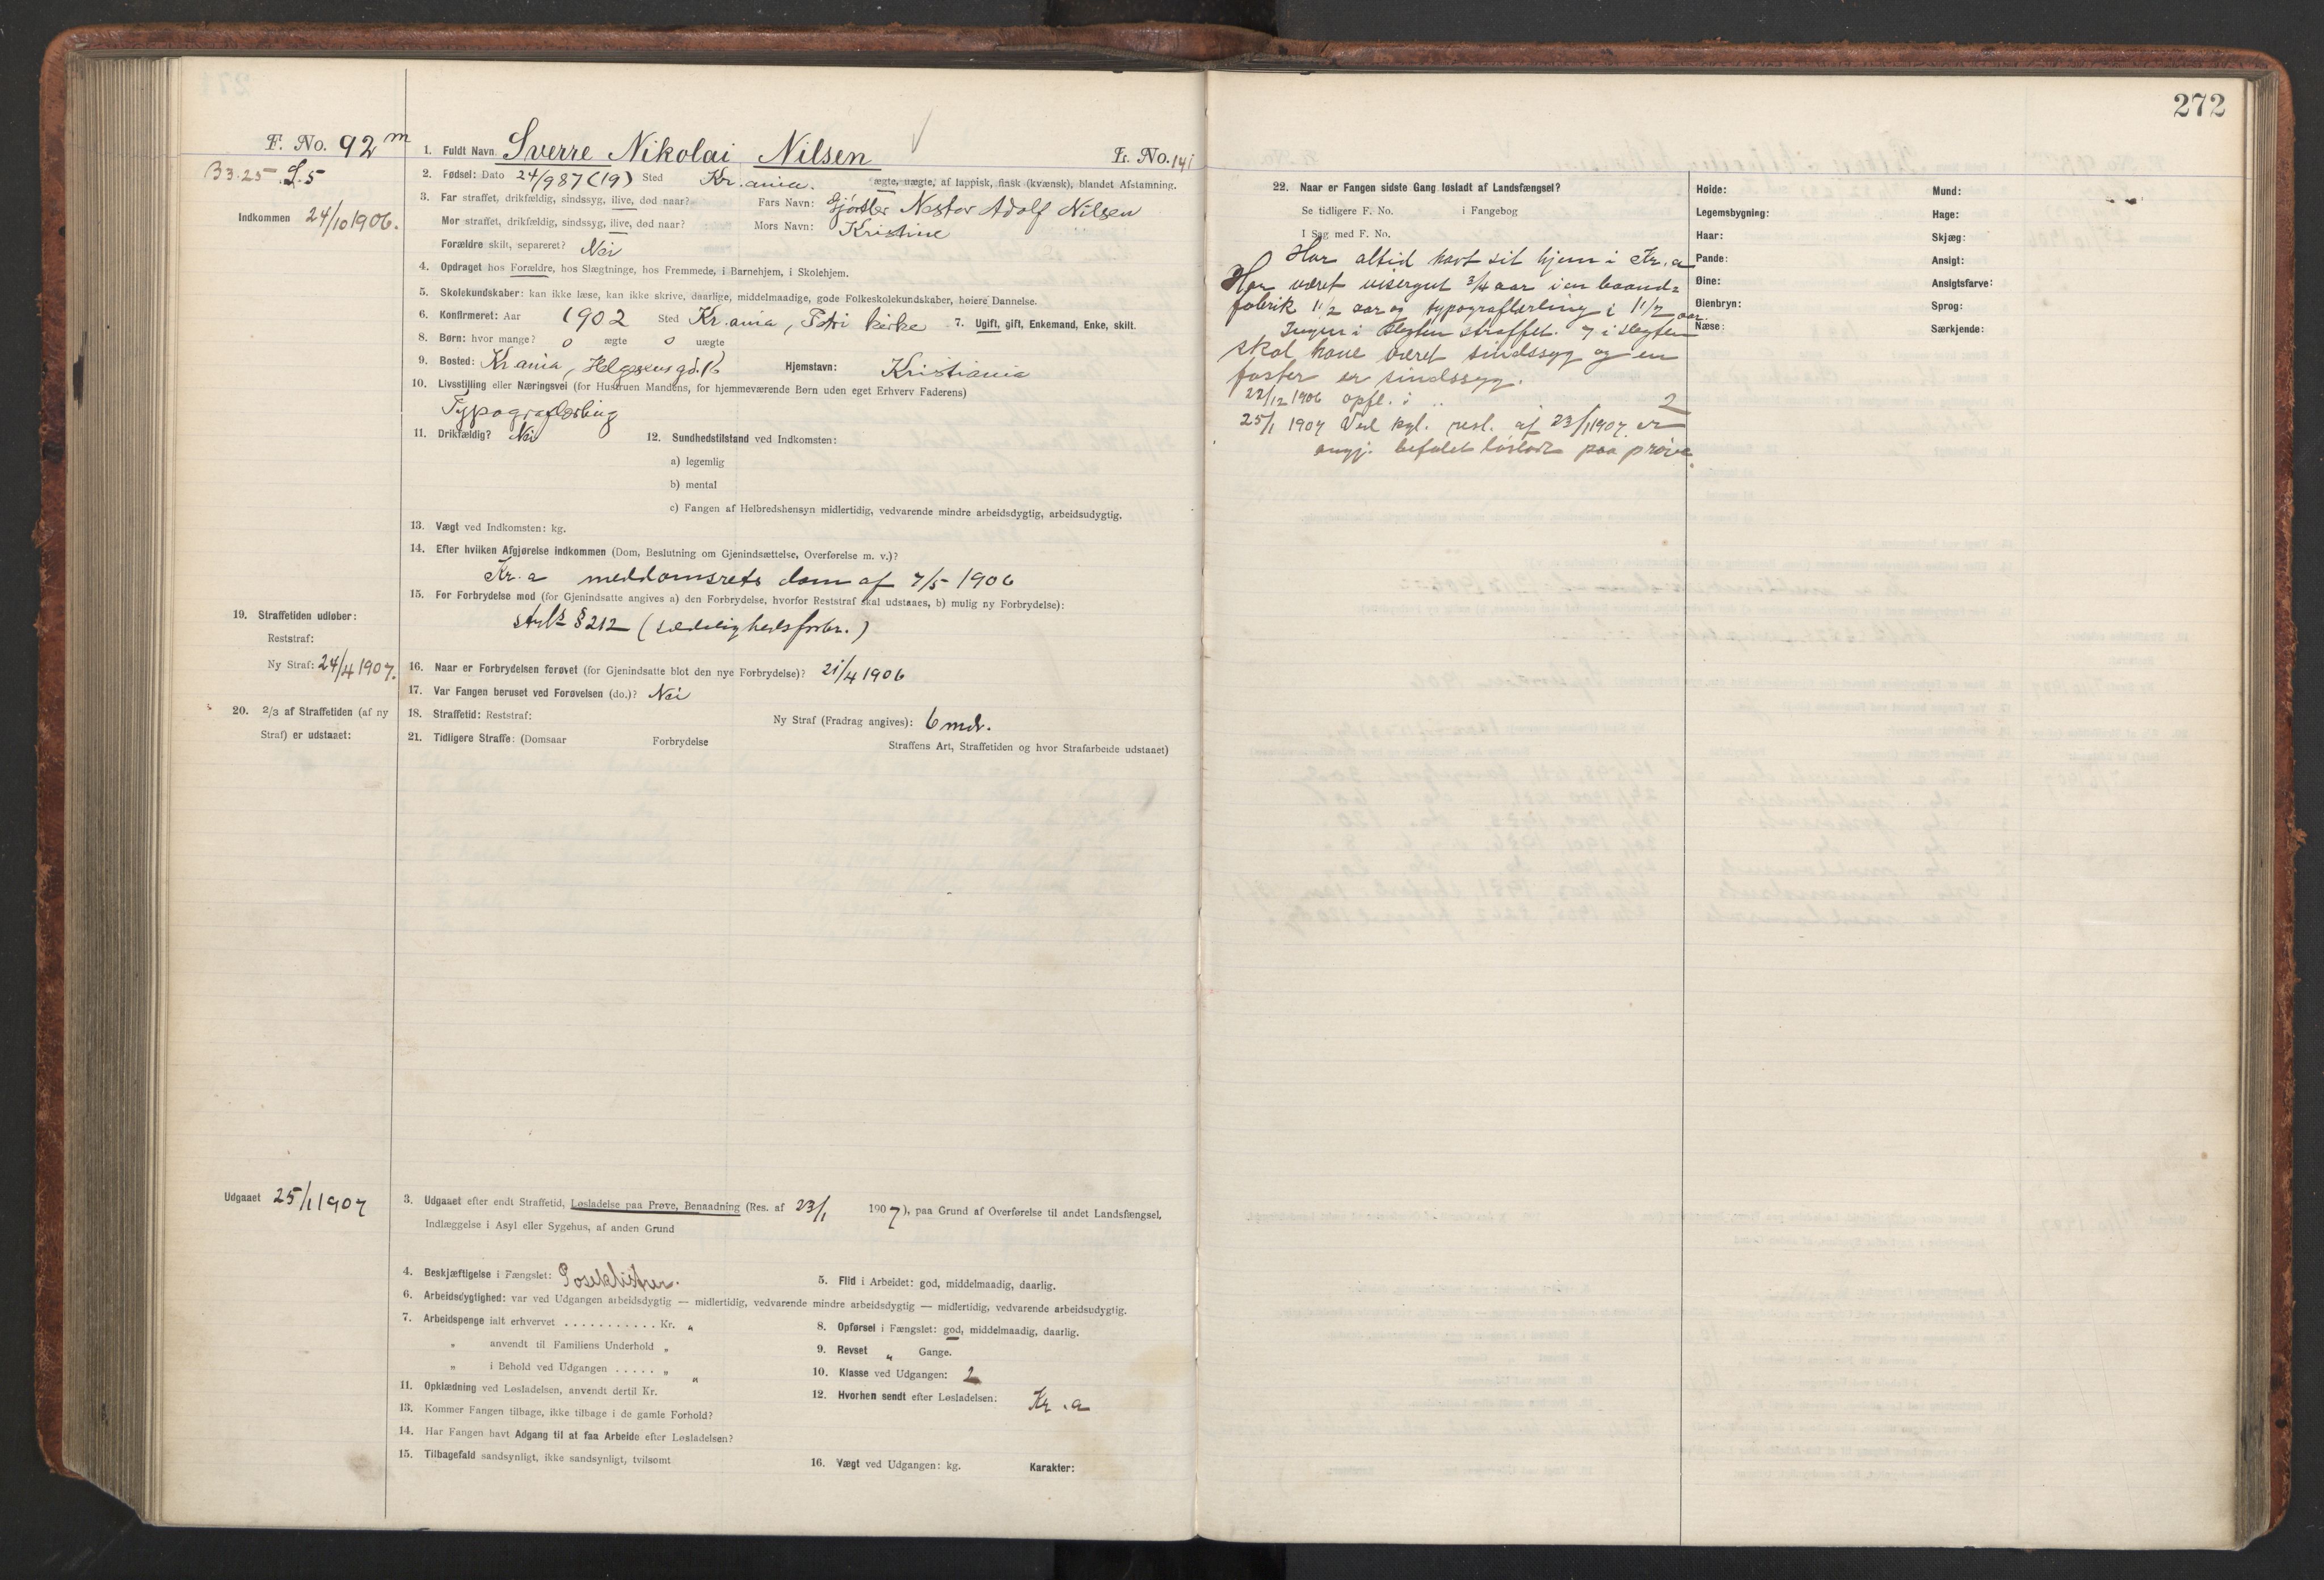 272
F. No. 92 m
33.25 L.5
Indkommen 24/10 1906.
1. Fuldt Navn Sverre Nikolai Nilsen
L. No. 141
2. Fødsel: Dato 24/9 87 (19) Sted Kr.ania. ægte, uægte, af lappisk, finsk (kvænsk), blandet Afstamning.
3. Far straffet, drikfældig, sindssyg, ilive, død naar? Fars Navn: Gjørtler Nestor Adolf Nilsen
Mor straffet, drikfældig, sindssyg, ilive, død naar? Mors Navn: Kristine
Forældre skilt, separeret? Nei
4. Opdraget hos Forældre, hos Slægtninge, hos Fremmede, i Barnehjem, i Skolehjem.
5. Skolekundskaber: kan ikke læse, kan ikke skrive, daarlige, middelmaadige, gode Folkeskolekundskaber, høiere Dannelse.
6. Konfirmeret: Aar 1902 Sted Kr.ania, Petri kirke 7. Ugift, gift, Enkemand, Enke, skilt.
8. Børn: hvor mange? 0 ægte 0 uægte
9. Bosted: Kr ania, Helgesensgd. Hjemstavn: Kristiania
10. Livsstilling eller Næringsvei (for Hustruen Mandens, for hjemmeværende Børn uden eget Erhverv Faderens)
Typograflærling
11. Drikfældig? Nei 12. Sundhedstilstand ved Indkomsten:
a) legemlig
b) mental
c) Fangen af Helbredshensyn midlertidig, vedvarende mindre arbeidsdygtig, arbeidsudygtig.
13. Vægt ved Indkomsten: kg.
14. Efter hvilken Afgjørelse indkommen (Dom, Beslutning om Gjenindsættelse, Overførelse m. v.)?
Kr. a meddomsrets dom af 7/5 1906
15. For Forbrydelse mod (for Gjenindsatte angives a) den Forbrydelse, hvorfor Reststraf skal udstaaes, b) mulig ny Forbrydelse):
strfl. § 212 (sædelighedsforbr.)
19. Straffetiden udløber:
Reststraf:
Ny Straf: 24/4 1907.
16. Naar er Forbrydelsen forøvet (for Gjenindsatte blot den nye Forbrydelse)? 21/4 1906
17. Var Fangen beruset ved Forøvelsen (do.)? Nei
20. 2/3 af Straffetiden (af ny
Straf) er udstaaet:
18. Straffetid: Reststraf: Ny Straf (Fradrag angives): 6 mdr.
21. Tidligere Straffe: (Domsaar Forbrydelse Straffens Art, Straffetiden og hvor Strafarbeide udstaaet)
Udgaaet 25/1 1907
3. Udgaaet efter endt Straffetid, Løsladelse paa Prøve, Benaadning (Res. af 23/1 1907), paa Grund af Overførelse til andet Landsfængsel,
Indlæggelse i Asyl eller Sygehus, af anden Grund
4. Beskjæftigelse i Fængslet: Poseklistrer. 5. Flid i Arbeidet: god, middelmaadig, daarlig.
6. Arbeidsdygtighed: var ved Udgangen arbeidsdygtig — midlertidig, vedvarende mindre arbeidsdygtig — midlertidig, vedvarende arbeidsudygtig.
7. Arbeidspenge ialt erhvervet . . . . . . . . . . . Kr. „ 8. Opførsel i Fængslet: god, middelmaadig, daarlig.
„ anvendt til Familiens Underhold „ 9. Revset „ Gange.
„ i Behold ved Udgangen . . . . . „ „ 10. Klasse ved Udgangen: 2
11. Opklædning ved Løsladelsen, anvendt dertil Kr. 12. Hvorhen sendt efter Løsladelsen: Kr. a
13. Kommer Fangen tilbage, ikke tilbage i de gamle Forhold?
14. Har Fangen havt Adgang til at faa Arbeide efter Løsladelsen?
15. Tilbagefald sandsynligt, ikke sandsynligt, tvilsomt 16. Vægt ved Udgangen: kg. Karakter:
22. Naar er Fangen sidste Gang løsladt af Landsfængsel?
Se tidligere F. No. i Fangebog
I Sag med F. No.
Har altid havt sit hjem i Kr. a
Har været visergut 3/4 aar i en baand=
fabrik 1 1/2 aar og typograflærling i 1 1/2 aar
Ingen i slegten straffet. i slegten
skal have været sindssyg og en
faster er sindssyg.
22/12 1906 opfl. i 2
25/1 1907 Ved kgl. resl. af 23/1 1907 er
angj. befalet løsladt paa prøve.
Høide: Mund:
Legemsbygning: Hage:
Haar: Skjæg:
Pande: Ansigt:
Øine: Ansigtsfarve:
Øienbryn: Sprog:
Næse: Særkjende: